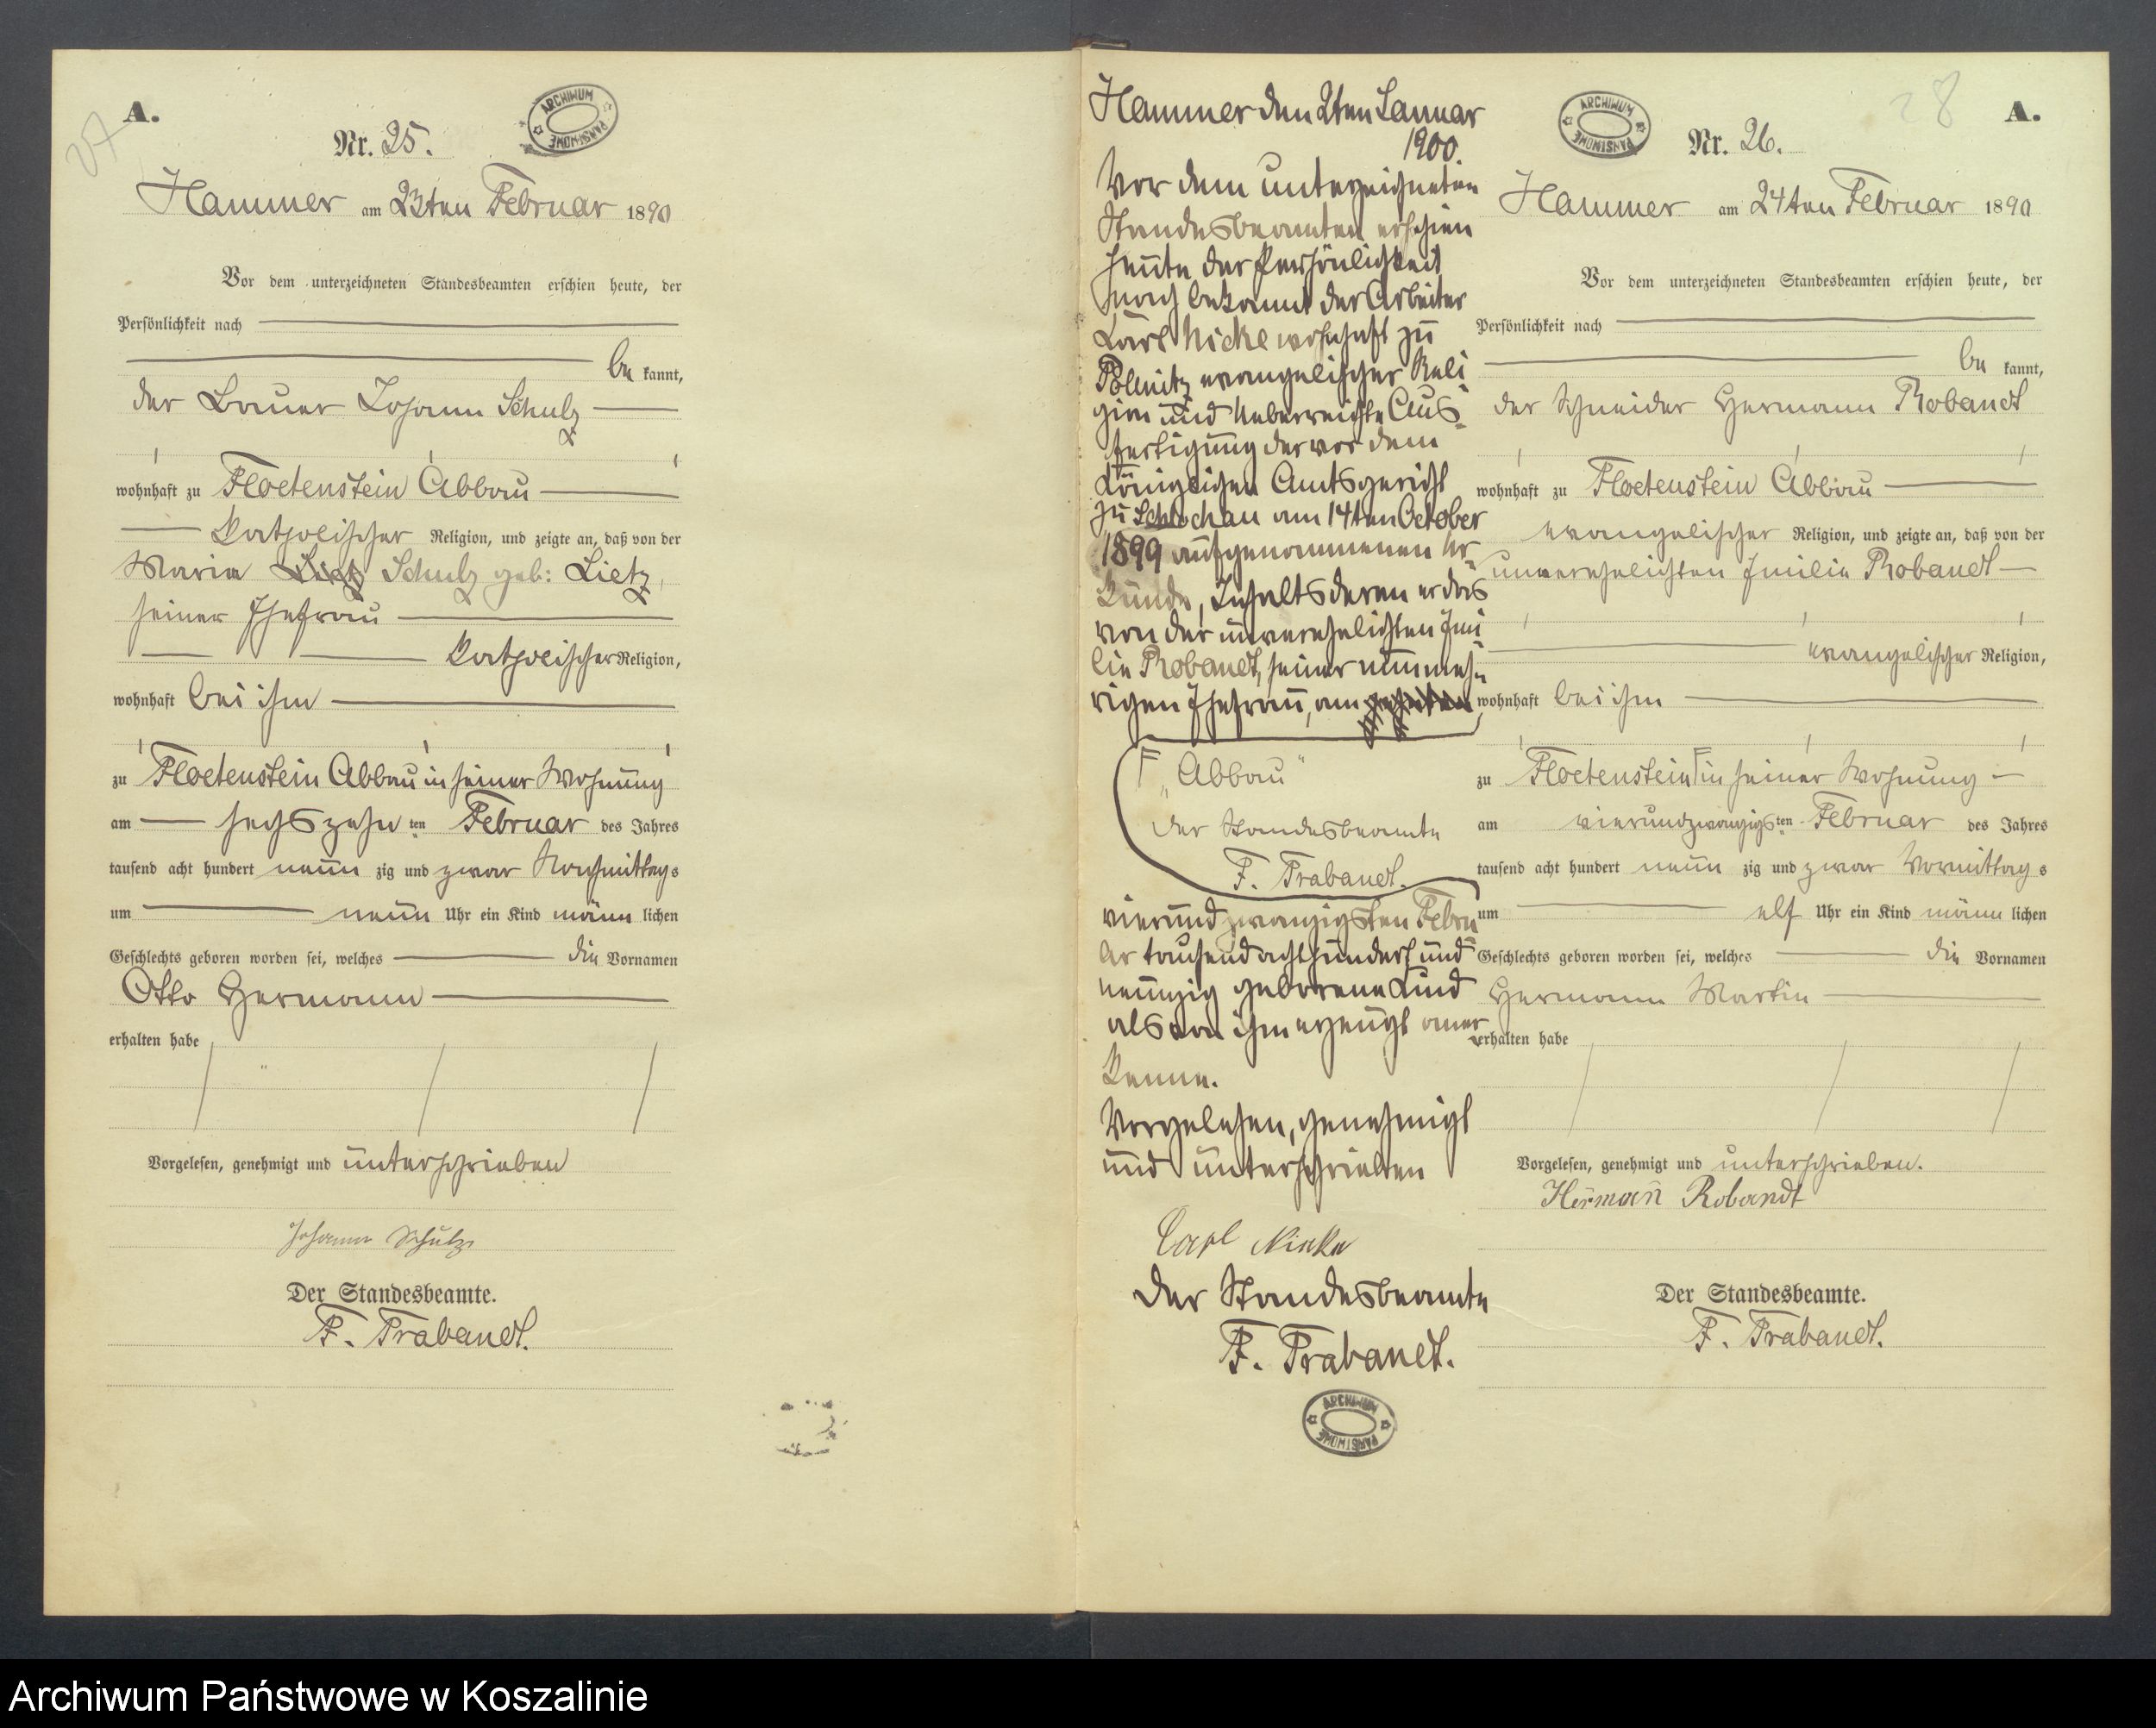 A.
27
Nr. 25.
ARCHIWUM PAŃSTWOWE
Hammer am 23ten Februar 1890
Vor dem unterzeichneten Standesbeamten erschien heute, der
Persönlichkeit nach
be kannt,
der Bauer Johann Schulz
wohnhaft zu Floetenstein Abbau
katholischer Religion, und zeigte an, daß von der
Maria Lietz Schulz geb: Lietz,
seiner Ehefrau
katholischer Religion,
wohnhaft bei ihm
zu Floetenstein Abbau in seiner Wohnung
am sechszehn ten Februar des Jahres
tausend acht hundert neun zig und zwar Nachmittags
um neun Uhr ein Kind männ lichen
Geschlechts geboren worden sei, welches die Vornamen
Otto Hermann
erhalten habe
Vorgelesen, genehmigt und unterschrieben
Johann Schulz
Der Standesbeamte.
F. Trabandt.
Hammer den 2ten Januar
1900.
Vor dem unterzeichneten
Standesbeamten erschien
heute der Persönlichkeit
nach bekannt der Arbeiter
Karl Nicke wohnhaft zu
Pollnitz evangelischer Reli-
gion und ueberreichte Aus-
fertigung der vor dem
Königlichen Amtsgericht
zu Schlochau am 14ten October
1899 aufgenommenen Ur-
kunde, Inhalts deren er das
von der unverehelichten Emi-
lie Robandt, seiner nunmeh-
rigen Ehefrau, am
F „Abbau"
Der Standesbeamte
F. Trabandt.
vierundzwanzigsten Febru-
ar tausendachthundert und
neunzig geborene Kind
als von ihm erzeugt aner-
kenne.
Vorgelesen, genehmigt
und unterschrieben
Carl Nicke
Der Standesbeamte
F. Trabandt.
ARCHIWUM PAŃSTWOWE
ARCHIWUM PAŃSTWOWE
28
A.
Nr. 26.
Hammer am 24ten Februar 1890
Vor dem unterzeichneten Standesbeamten erschien heute, der
Persönlichkeit nach
be kannt,
der Schneider Hermann Robandt
wohnhaft zu Floetenstein Abbau
evangelischer Religion, und zeigte an, daß von der
unverehelichten Emilie Robandt
evangelischer Religion,
wohnhaft bei ihm
zu Floetenstein F in seiner Wohnung
am vierundzwanzigsten Februar des Jahres
tausend acht hundert neun zig und zwar Vormittag s
um elf Uhr ein Kind männ lichen
Geschlechts geboren worden sei, welches die Vornamen
Hermann Martin
erhalten habe
Vorgelesen, genehmigt und unterschrieben.
Hermann Robandt
Der Standesbeamte.
F. Trabandt.
Archiwum Państwowe w Koszalinie